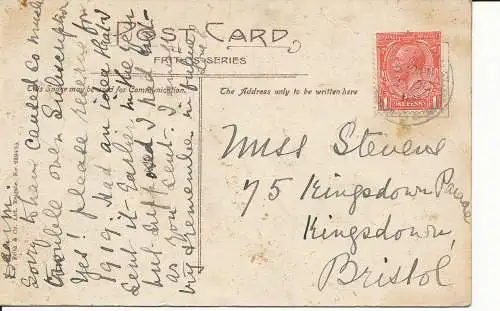 POST CARD
FRITH'S SERIES
This Space may be used for Communication.
The Address only to be written here
ONE PENNY
Miss Stevens
75 Kingsdown Parade
Kingsdown,
Bristol
Dear M.
Sorry to have caused so much
trouble over Subscription
Yes! please reserve for
1919. Had an idea that I
sent it Earlier in the year
but supposed I had not
as you sent. I must
try & remember in future
Love